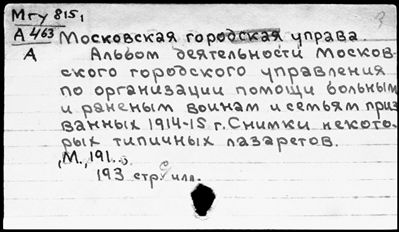 Мгу 815,
А 463 Московская городская управа.
А Альбом деятельности Москов-
ского городского управления
по организации помощи больным
и раненым воинам и семьям приз
ванных 1914-15 г. Снимки некото-
рых типичных лазаретов.
М., 191..
193 стр. с илл.